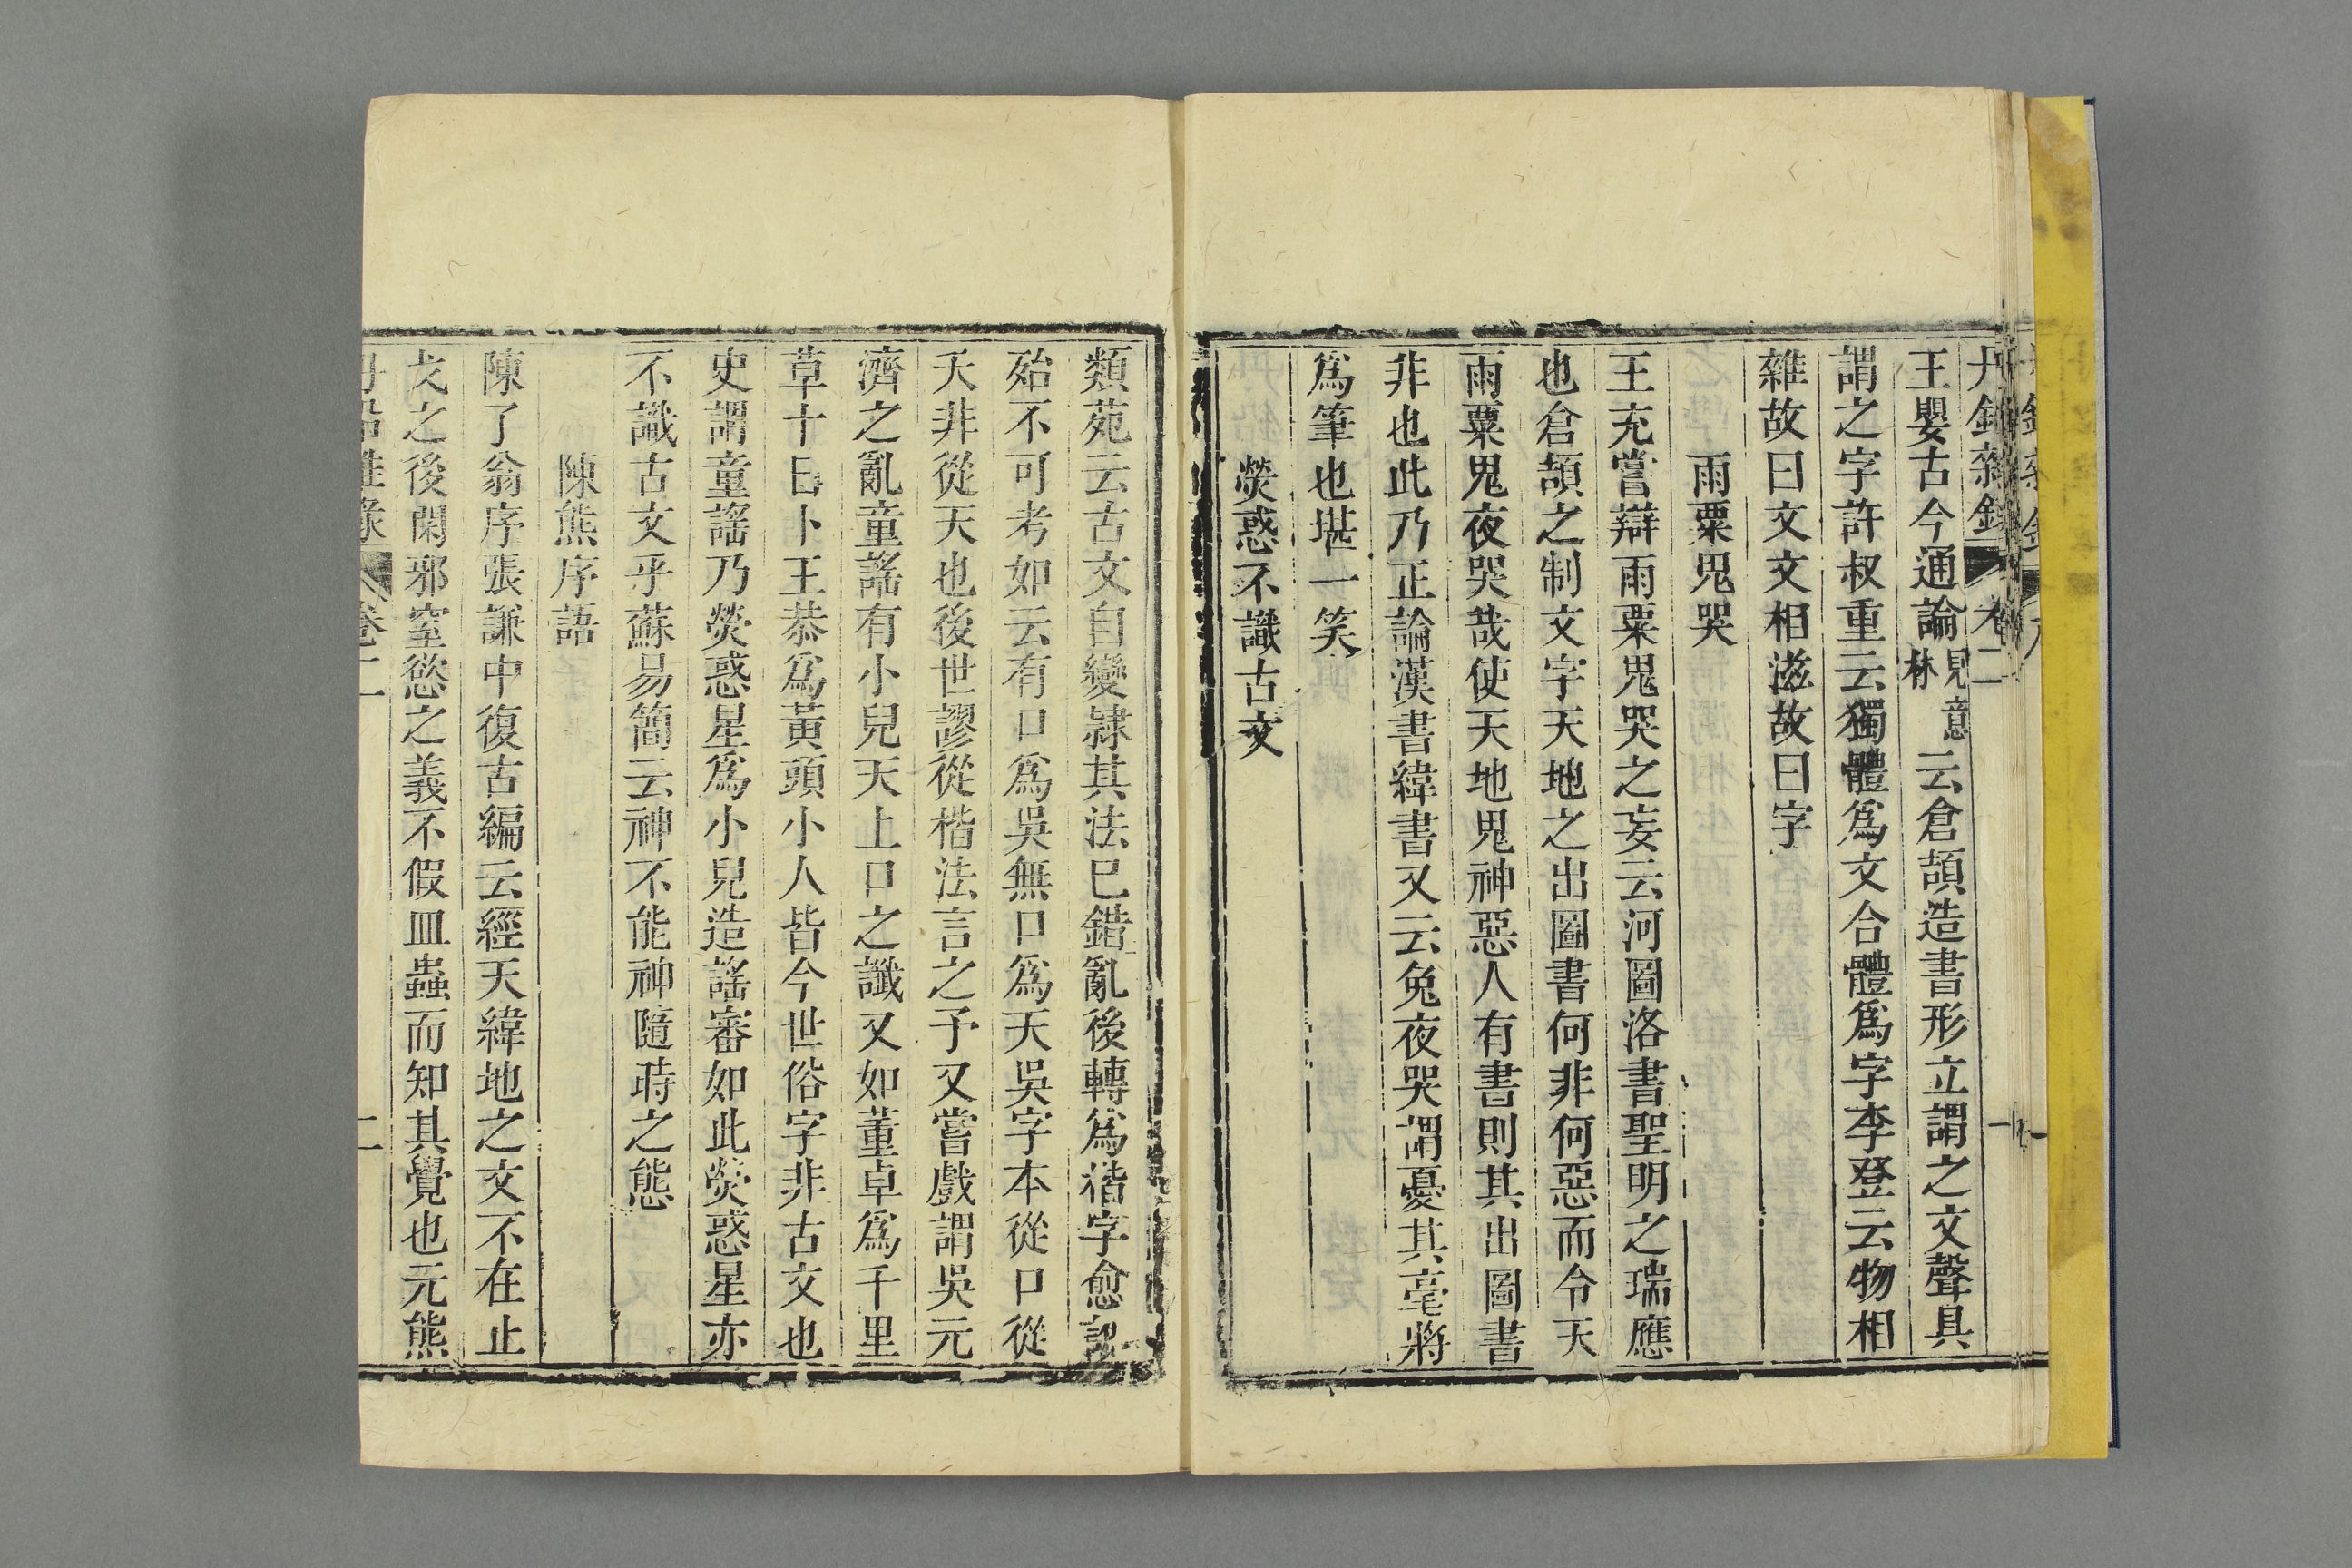 丹鉛雜錄 卷二
王嬰古今通論見意林云倉頡造書形立謂之文聲具
謂之字許叔重云獨體爲文合體爲字李登云物相
雜故曰文文相滋故曰字
雨粟鬼哭
王充嘗辯雨粟鬼哭之妄云河圖洛書聖明之瑞應
也倉頡之制文字天地之出圖書何非何惡而令天
雨粟鬼夜哭哉使天地鬼神惡人有書則其出圖書
非也此乃正論漢書緯書又云兔夜哭謂憂其毫將
爲筆也堪一笑
熒惑不識古文
類苑云古文自變隸其法已錯亂後轉爲楷字愈訛
殆不可考如云有口爲吳無口爲天吳字本從口從
夨非從天也後世謬從楷法言之予又嘗戲謂吳元
濟之亂童謠有小兒天上口之讖又如董卓爲千里
草十日卜王恭爲黃頭小人皆今世俗字非古文也
史謂童謠乃熒惑星爲小兒造謠審如此熒惑星亦
不識古文乎蘇易簡云神不能神隨時之態
陳熊序語
陳了翁序張謙中復古編云經天緯地之文不在止
戈之後閑邪窒慾之義不假皿蟲而知其覺也元熊
丹鉛雜錄 卷二 二